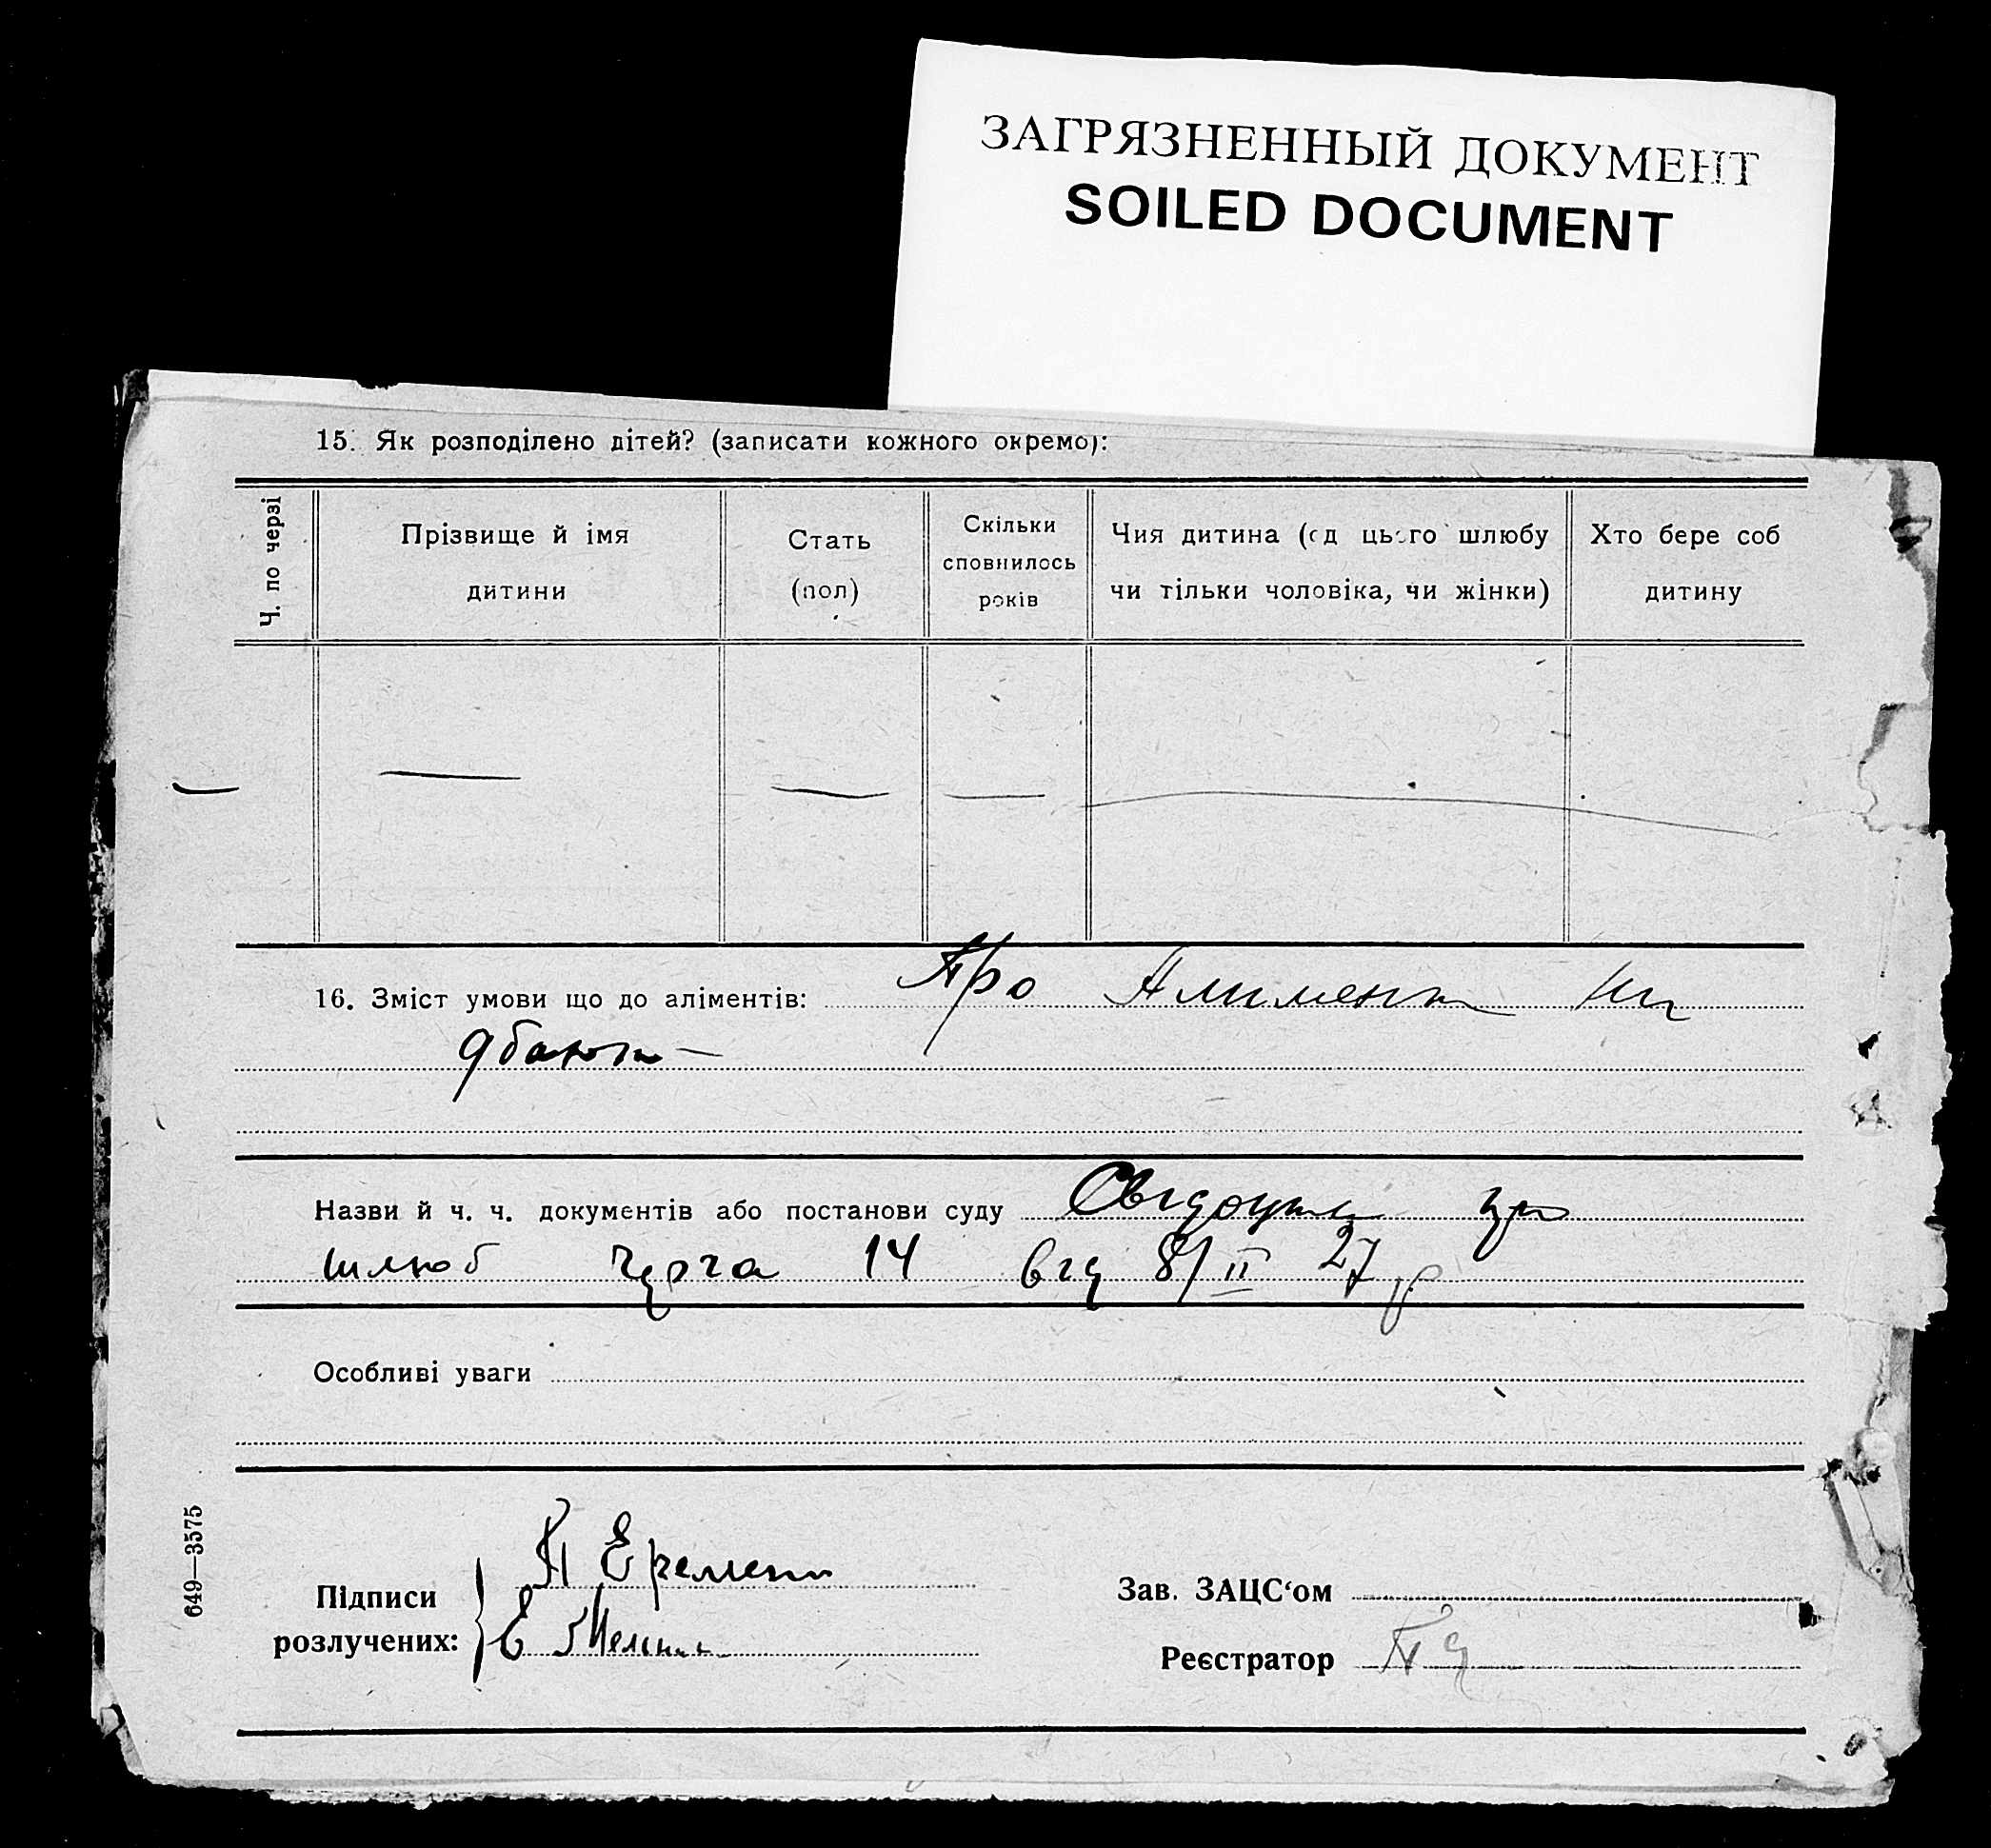 ЗАГРЯЗНЕННЫЙ ДОКУМЕНТ
SOILED DOCUMENT
15. Як розподілено дітей? (записати кожного окремо):
Ч. по черзі
Прізвище й імя
дитини
Стать
(пол)
Скільки
сповнилось
років
Чия дитина (од цього шлюбу
чи тільки чоловіка, чи жінки)
Хто бере соб
дитину
16. Зміст умови що до аліментів: Про Алимент
дбають —
Назви й ч. ч. документів або постанови суду
шлюб 14 від 8/II 27 р
Особливі уваги
649—3575
Підписи
розлучених:
Зав. ЗАЦС‘ом
Реєстратор